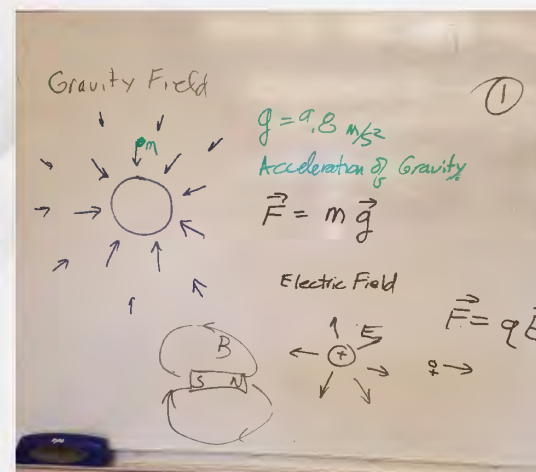 ①
Gravity Field
m
g = 9.8 m/s²
Acceleration of Gravity
F⃗ = m g⃗
Electric Field
F⃗ = q E
E
+
q
B
S N